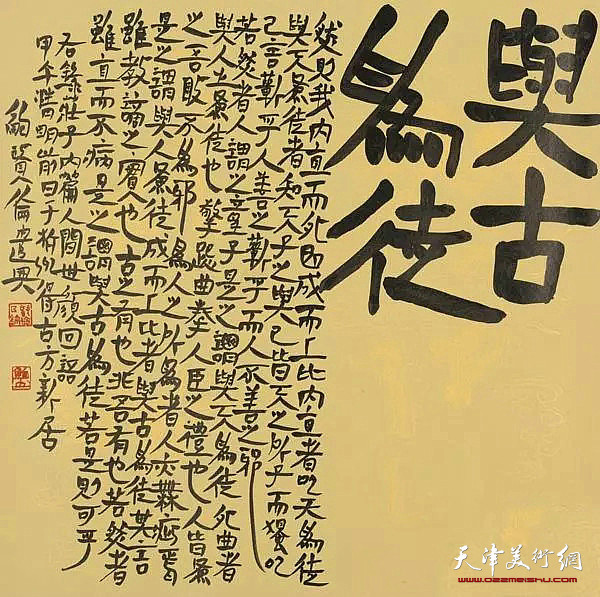 與古
為徒
然則我内直而外曲成而上比内直者與天為徒
與天為徒者知天子之與己皆天之所子而獨以
己言蘄乎人善之蘄乎而人不善之邪
若然者人謂之童子是之謂與天為徒外曲者
與人之為徒也擎跽曲拳人臣之禮也人皆為
之吾敢不為邪為人之所為者人亦無疵焉
是之謂與人為徒成而上比者與古為徒其言
雖教讁之實也古之有也非吾有也若然者
雖直而不病是之謂與古為徒若是則可乎
右錄莊子内篇人間世顏回語
甲午清明前日于 得古方新居
鮑賢倫遣興
天津美術網
www.022meishu.com